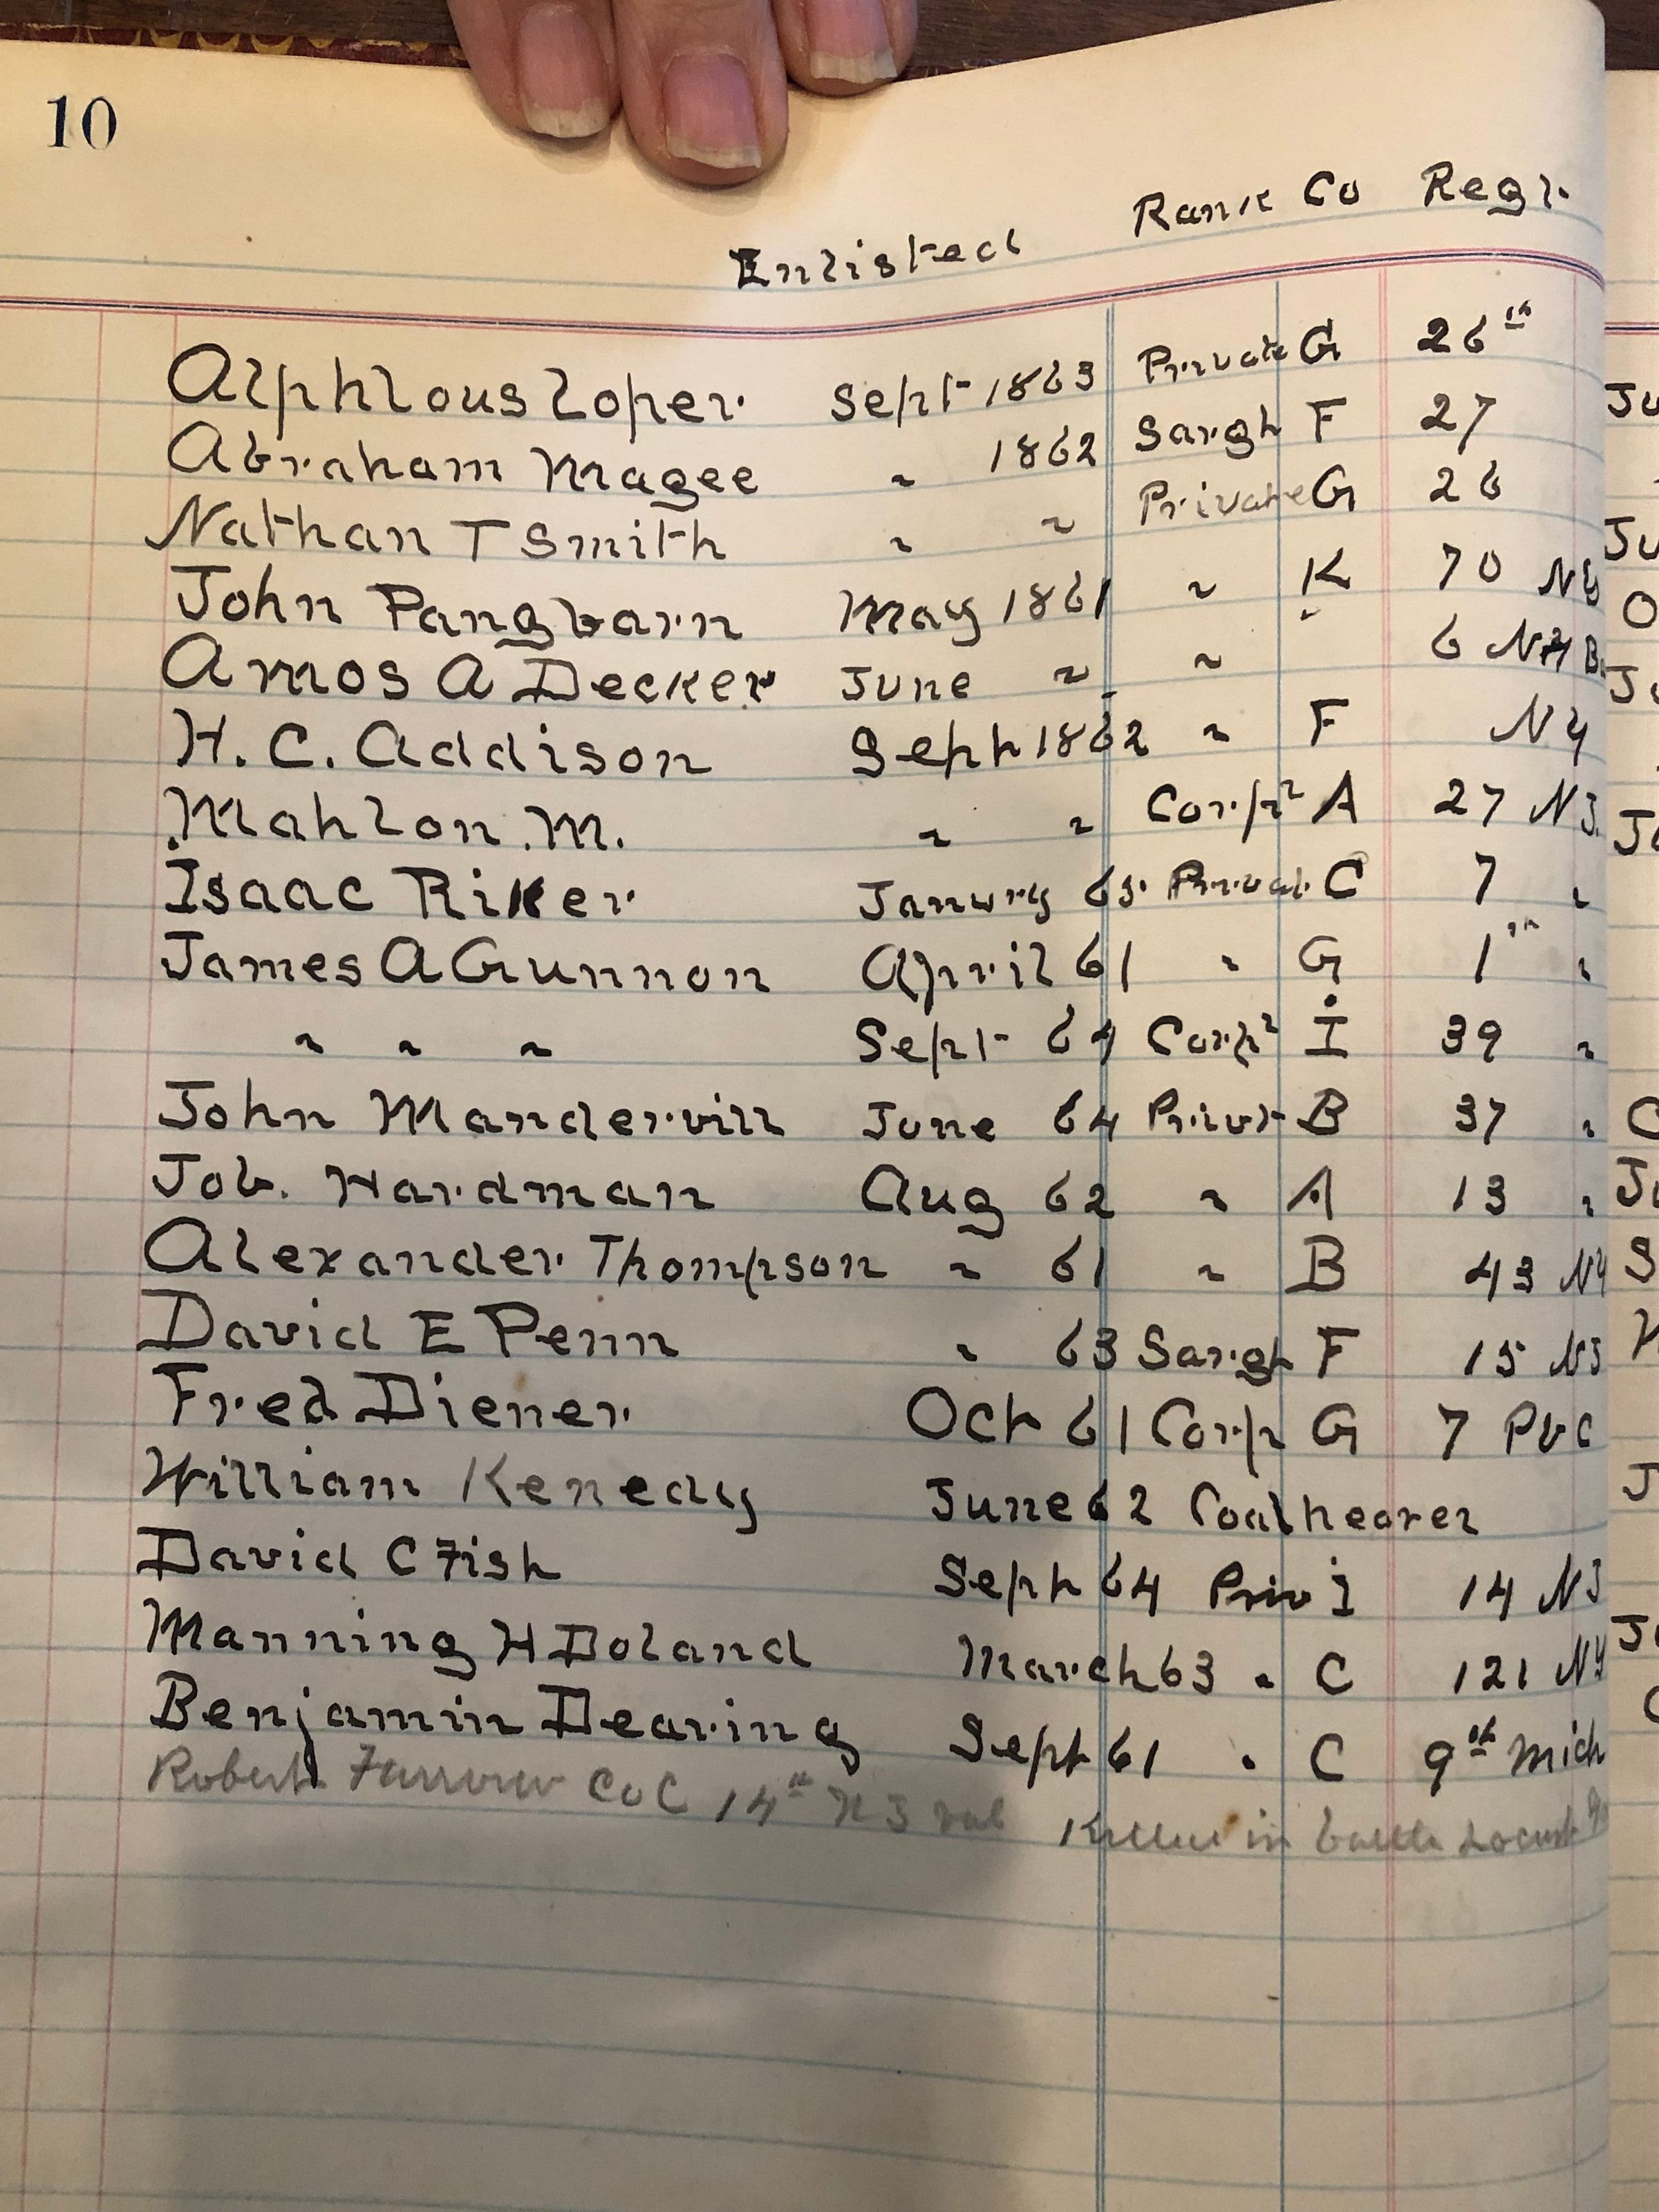 10
Enlisted Rank Co Regt.
Alphlous Loper Sept 1863 Private G 26th
Abraham Magee " 1862 Sargt F 27
Nathan T Smith " " Private G 26
John Pangbarn May 1861 " K 70 NY
Amos A Decker June " " 6 NY B.
H. C. Addison Sept 1862 " F NY
Mahlon M. " " Corpl A 27 NJ.
Isaac Riker Janury 65 Privat C 7 "
James A Gunnon April 61 " G 1st "
" " " Sept 64 Corpl I 39 "
John Mandervill June 64 Privt B 37 "
Job. Hardman Aug 62 " A 13 "
Alexander Thompson " 61 " B 43 NY
David E Penn " 63 Sargt F 15 NJ
Fred Diener Oct 61 Corp G 7 PVC
William Kenedy June 62 Coalheaver
David C Fish Sept 64 Priv I 14 NJ
Manning H Doland March 63 " C 121 NY
Benjamin Dearing Sept 61 " C 9th Mich
Robert Furrow Co C 14th NJ vol Killed in battle Locust